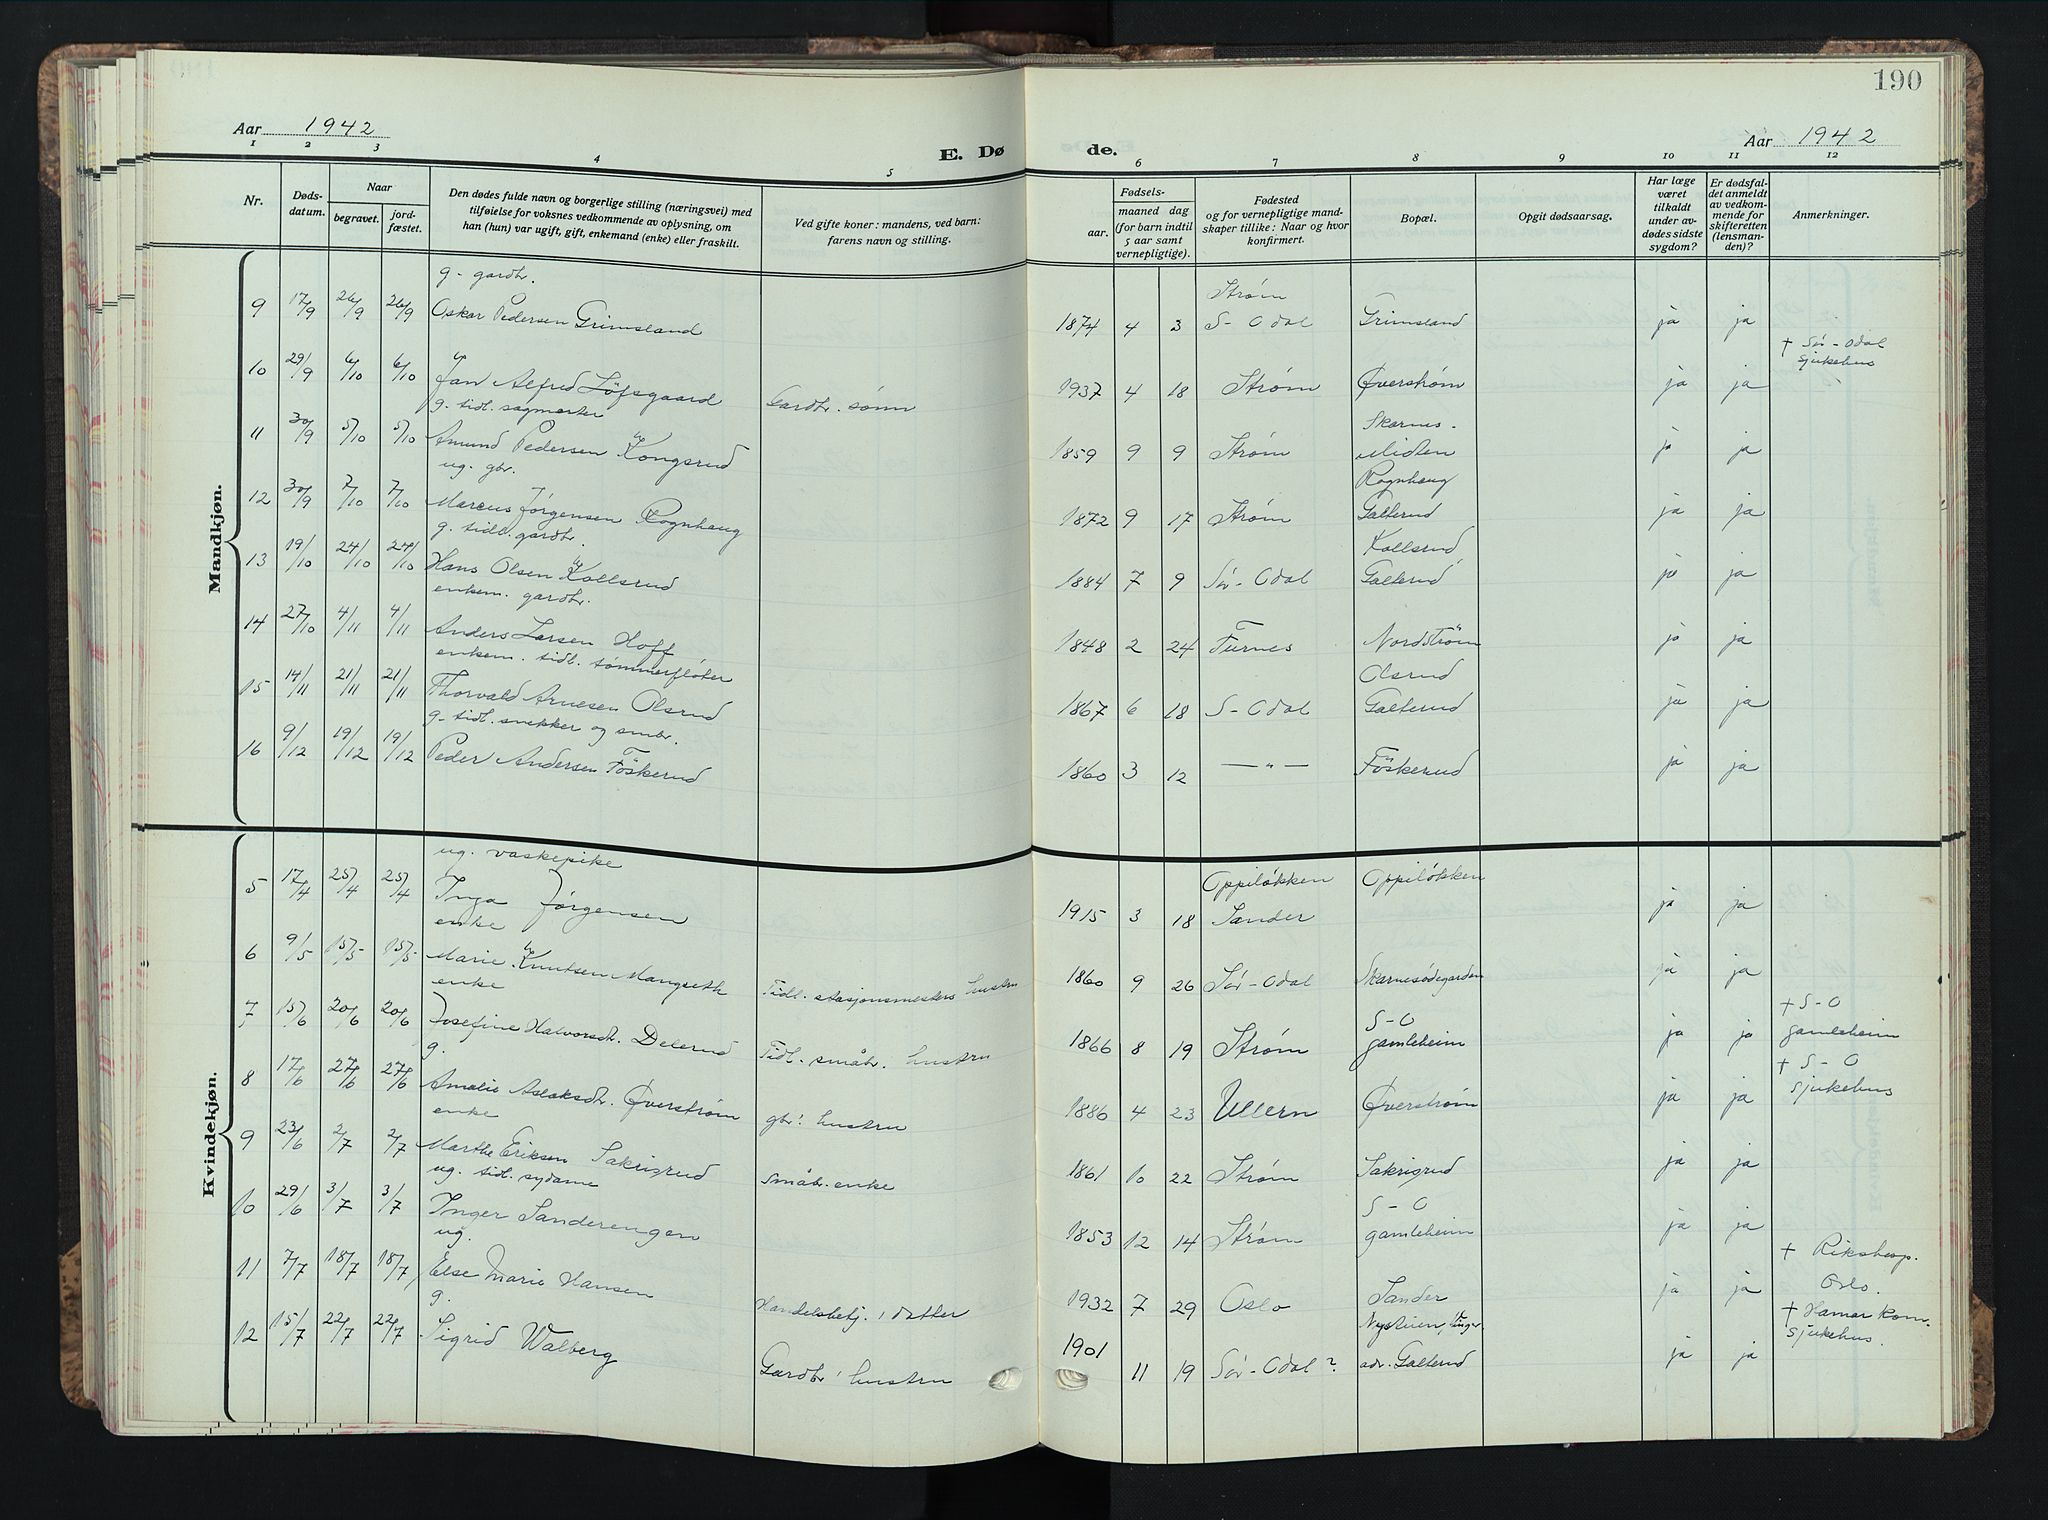 190
Aar 1942
E. Dø
de.
Aar 1942
1 2 3 4 5 6 7 8 9 10 11 12
Nr.
Døds-
datum.
Naar
begravet.
jord-
fæstet.
Den dødes fulde navn og borgerlige stilling (næringsvei) med
tilføielse for voksnes vedkommende av oplysning, om
han (hun) var ugift, gift, enkemand (enke) eller fraskilt.
Ved gifte koner: mandens, ved barn:
farens navn og stilling.
Fødsels-
aar.
maaned dag
(for barn indtil
5 aar samt
vernepligtige).
Fødested
og for vernepligtige mand-
skaper tillike: Naar og hvor
konfirmert.
Bopæl.
Opgit dødsaarsag.
Har læge
været
tilkaldt
under av-
dødes sidste
sygdom?
Er dødsfal-
det anmeldt
av vedkom-
mende for
skifteretten
(lensman-
den)?
Anmerkninger.
Mandkjøn.
g. gardbr.
9 17/9 26/9 26/9 Oskar Pedersen Grimsland 1874 4 3 Strøm S-Odal Grimsland ja ja
10 29/9 6/10 6/10 Jan Alfred Löfsgaard Gardbr. sønn 1937 4 18 Strøm Øverstrøm ja ja † Sør-Odal sjukehus
g. tidl. sagmester
11 30/9 5/10 5/10 Amund Pedersen Kongsrud 1859 9 9 Strøm Skarnes- ja ja
ug. gbr.
12 30/9 7/10 7/10 Marcus Jørgensen Rognhaug 1872 9 17 Strøm Rognhaug Galterud ja ja
g. tidl. gardbr.
13 19/10 24/10 24/10 Hans Olsen Kollsrud 1884 7 9 Sør-Odal Kollsrud, Galterud ja ja
enkem. gardbr.
14 27/10 4/11 4/11 Anders Larsen Hoff 1848 2 24 Furnes Nordström ja ja
enkem. tidl. tømmerfløter
15 14/11 21/11 21/11 Thorvald Arnesen Olsrud 1867 6 18 S-Odal Olsrud Galterud ja ja
g. tidl. snekker og smbr.
16 9/12 19/12 19/12 Peder Andersen Föskerud 1860 3 12 — " — Föskerud ja ja
Kvindekjøn.
ug. vaskepike
5 17/4 25/4 25/4 Inga Jørgensen 1915 3 18 Oppiløkken Sander Oppiløkken ja ja
enke
6 9/5 15/5 15/5 Marie Knutsen Mangseth Tidl. stasjonsmesters hustru 1860 9 26 Sør-Odal Skarnesødegarden ja ja
enke
7 15/6 20/6 20/6 Josefine Halvorsdr. Delerud Tidl. småbr. hustru 1866 8 19 Strøm S-O gamleheim ja ja † S-O gamleheim
g.
8 17/6 27/6 27/6 Amalie Aslaksdr. Øverstrøm gbr: hustru 1886 4 23 Ullern Øverstrøm ja ja † S-O sjukehus
enke
9 23/6 2/7 2/7 Marthe Eriksen Sakrisrud Småbr. enke 1861 10 22 Strøm Sakrisrud ja ja
ug. tidl. sydame
10 29/6 3/7 3/7 Inger Sanderengen 1853 12 14 Strøm S-O gamleheim ja ja
ug.
11 7/7 18/7 18/7 Else Marie Hansen Handelsbetj. datter 1932 7 29 Oslo Sander ja ja † Rikshosp. Oslo.
g.
12 15/7 22/7 22/7 Sigrid Walberg Gardbr hustru 1901 11 19 Sør-Odal? adr. Galterud ja ja † Hamar kom. sjukehus.